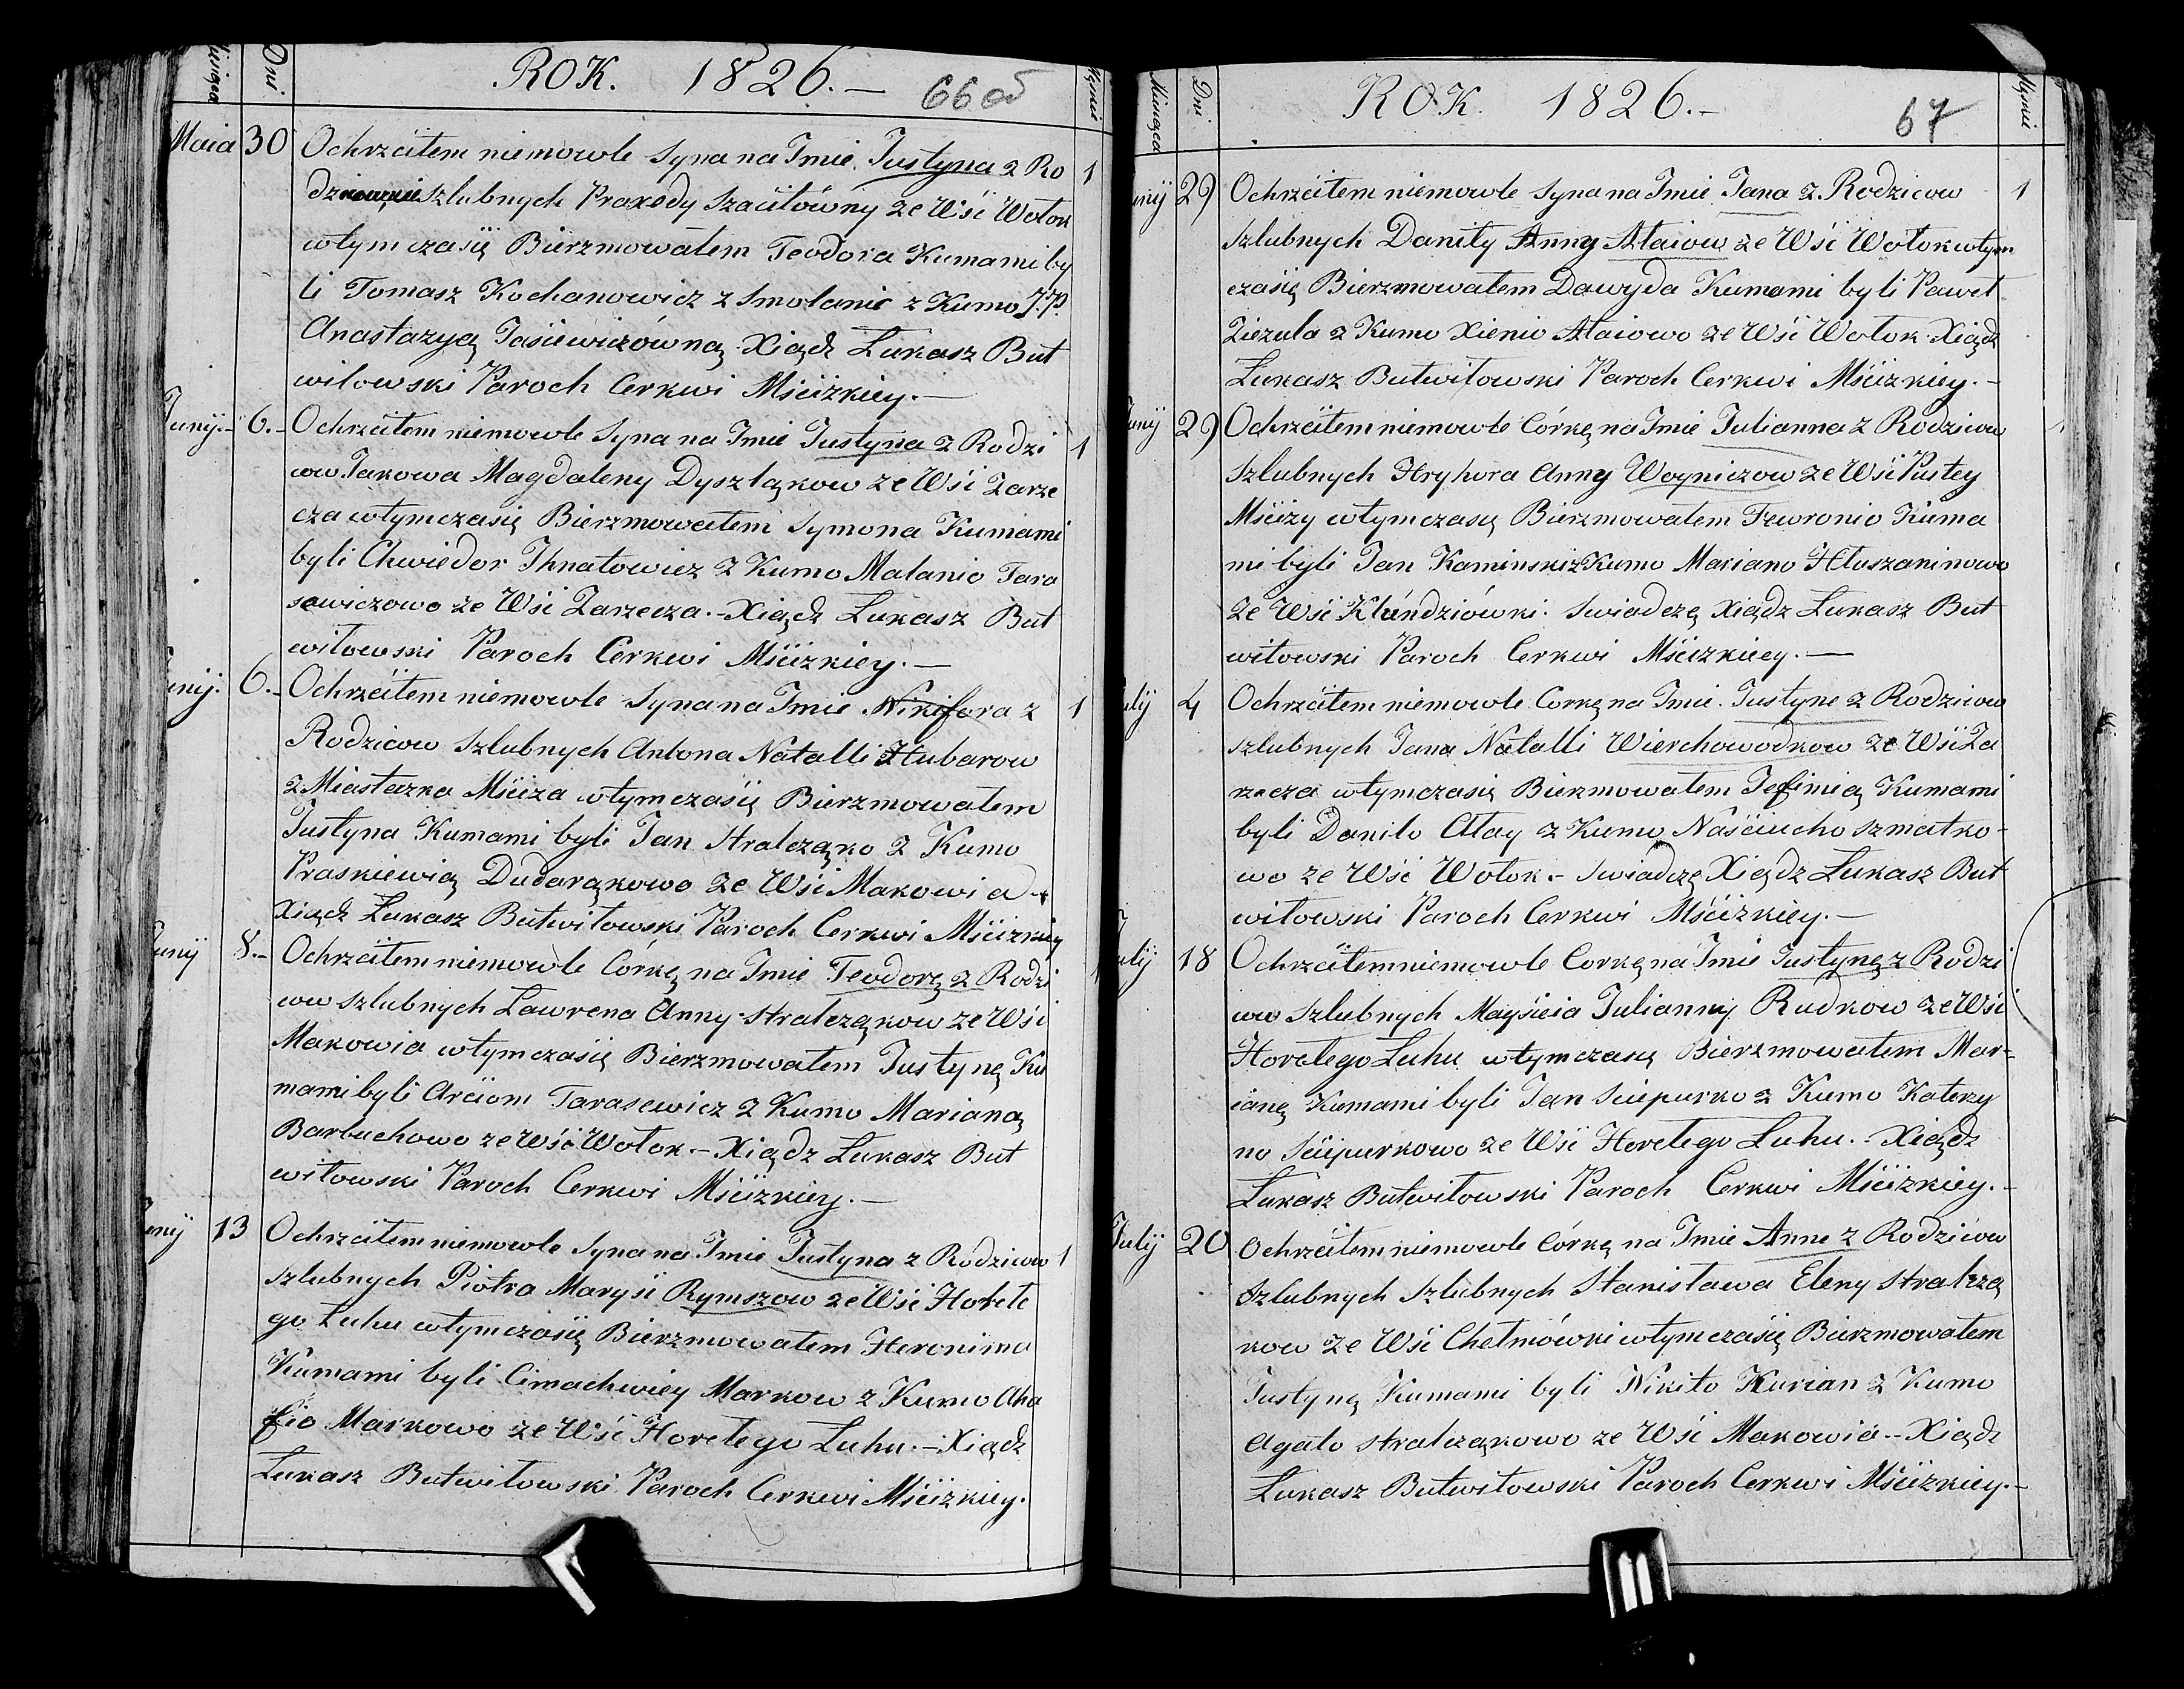 Miesiąca
Dni
ROK. 1826.—
66 об
Maia 30 Ochrzcitem niemowle Syna na Imie Justyna z Ro 1
szlubnych Praxedy Szaciłówny ze Wśi Wołok
wtym czasię Bierzmowałem Teodora Kumami by
li Tomasz Kochanowicz z Smolanic z Kumo J.P.
Anastazyą Jaśiewiczówną Xiądz Łukasz But
wiłowski Paroch Cerkwi Mśćizkiey.—
Junij.— 6.— Ochrzcitem niemowle Syna na Imie Justyna z Rodzi 1
cow Jakowa Magdaleny Dyszląkow ze Wśi Zarze
cza wtymczasię Bierzmowałem Symona Kumami
byli Chwiedor Ihnatowicz z Kumo Malanio Tara
sewiczowo ze Wśi Zarzecza.— Xiądz Łukasz But
wiłowski Paroch Cerkwi Mśćizkiey.—
Junij. 6.— Ochrzcitem niemowle Syna na Imie Nikifora z 1
Rodzicow Szlubnych Antona Natalli Hubarow
z Miastazka Mśćiza wtymczasię Bierzmowałem
Justyna Kumami byli Jan Stralcząko z Kumo
Praskiewią Dudarąkowo ze Wśi Makowia
Xiądz Łukasz Butwiłowski Paroch Cerkwi Mśćizkiey
Junij 8.— Ochrzcitem niemowle Córkę na Imie Teodorę z Rodzi 1
cow szlubnych Lawrena Anny Stralcząkow ze Wśi
Makowia wtymczasię Bierzmowałem Justynę Ku
mami byli Arciom Tarasewicz z Kumo Marianą
Barbuchowo ze Wśi Wołok.— Xiądz Łukasz But
wiłowski Paroch Cerkwi Mśćizkiey.—
Junij 13 Ochrzcitem niemowle Syna na Imie Justyna z Rodzicow 1
szlubnych Piotra Marysi Rymszow ze Wśi Horełe
go Luhu wtymczasię Bierzmowałem Heronima
Kumami byli Cimachwiey Markow z Kumo Aha
fio Markowo ze Wśi Horełego Luhu.— Xiądz
Łukasz Butwiłowski Paroch Cerkwi Mśćizkiey.
Miesiąca
Dni
ROK. 1826.—
67
Junij 29 Ochrzcitem niemowle Syna na Imie Jana z Rodzicow 1
szlubnych Daniły Anny Ałaiow ze Wśi Wołok wtym
czasię Bierzmowałem Dawyda Kumami byli Paweł
Ziezula z Kumo Xienio Ałaiowo ze Wśi Wołok Xiądz
Łukasz Butwiłowski Paroch Cerkwi Mśćizkiey.—
Junij 29 Ochrzcitem niemowle Córkę na Imie Julianna z Rodzicow
szlubnych Hryhora Anny Woyniczow ze Wśi Pustey
Mśćizy wtymczasię Bierzmowałem Fewronio Kuma
mi byli Jan Kaminski z Kumo Mariano Hłuszaninowo
ze Wśi Klundziówki. Swiadczę Xiądz Łukasz But
wiłowski Paroch Cerkwi Mśćizkiey.—
Julij 4 Ochrzcitem niemowle Corkę na Imie Justyne z Rodzicow
szlubnych Jana Natalli Wierchowodkow ze Wśi Za
rzecza wtymczasię Bierzmowałem Jefimią Kumami
byli Daniło Ałay z Kumo Naścincho Szmatko-
wo ze Wśi Wołok.— Swiadczę Xiądz Łukasz But
wiłowski Paroch Cerkwi Mśćizkiey.—
Julij 18 Ochrzcitem niemowle Corkę na Imie Justynę z Rodzi
cow szlubnych Mayśieia Julianny Rudkow ze Wśi
Horełego Luhu wtymczasię Bierzmowałem Mar-
ianę Kumami byli Jan Sciepurko z Kumo Katerzy
no Sciepurkowo ze Wśi Horełego Luhu.— Xiądz
Łukasz Butwiłowski Paroch Cerkwi Mśćizkiey.—
Julij 20 Ochrzcitem niemowle Córkę na Imie Anne z Rodzicow
szlubnych szlubnych Stanisława Eleny Stralczą
kow ze Wśi Chełmówki wtymczasię Bierzmowałem
Justynę Kumami byli Nikito Kurian z Kumo
Agato Stralcząkowo ze Wśi Makowia.— Xiądz
Łukasz Butwiłowski Paroch Cerkwi Mśćizkiey.—